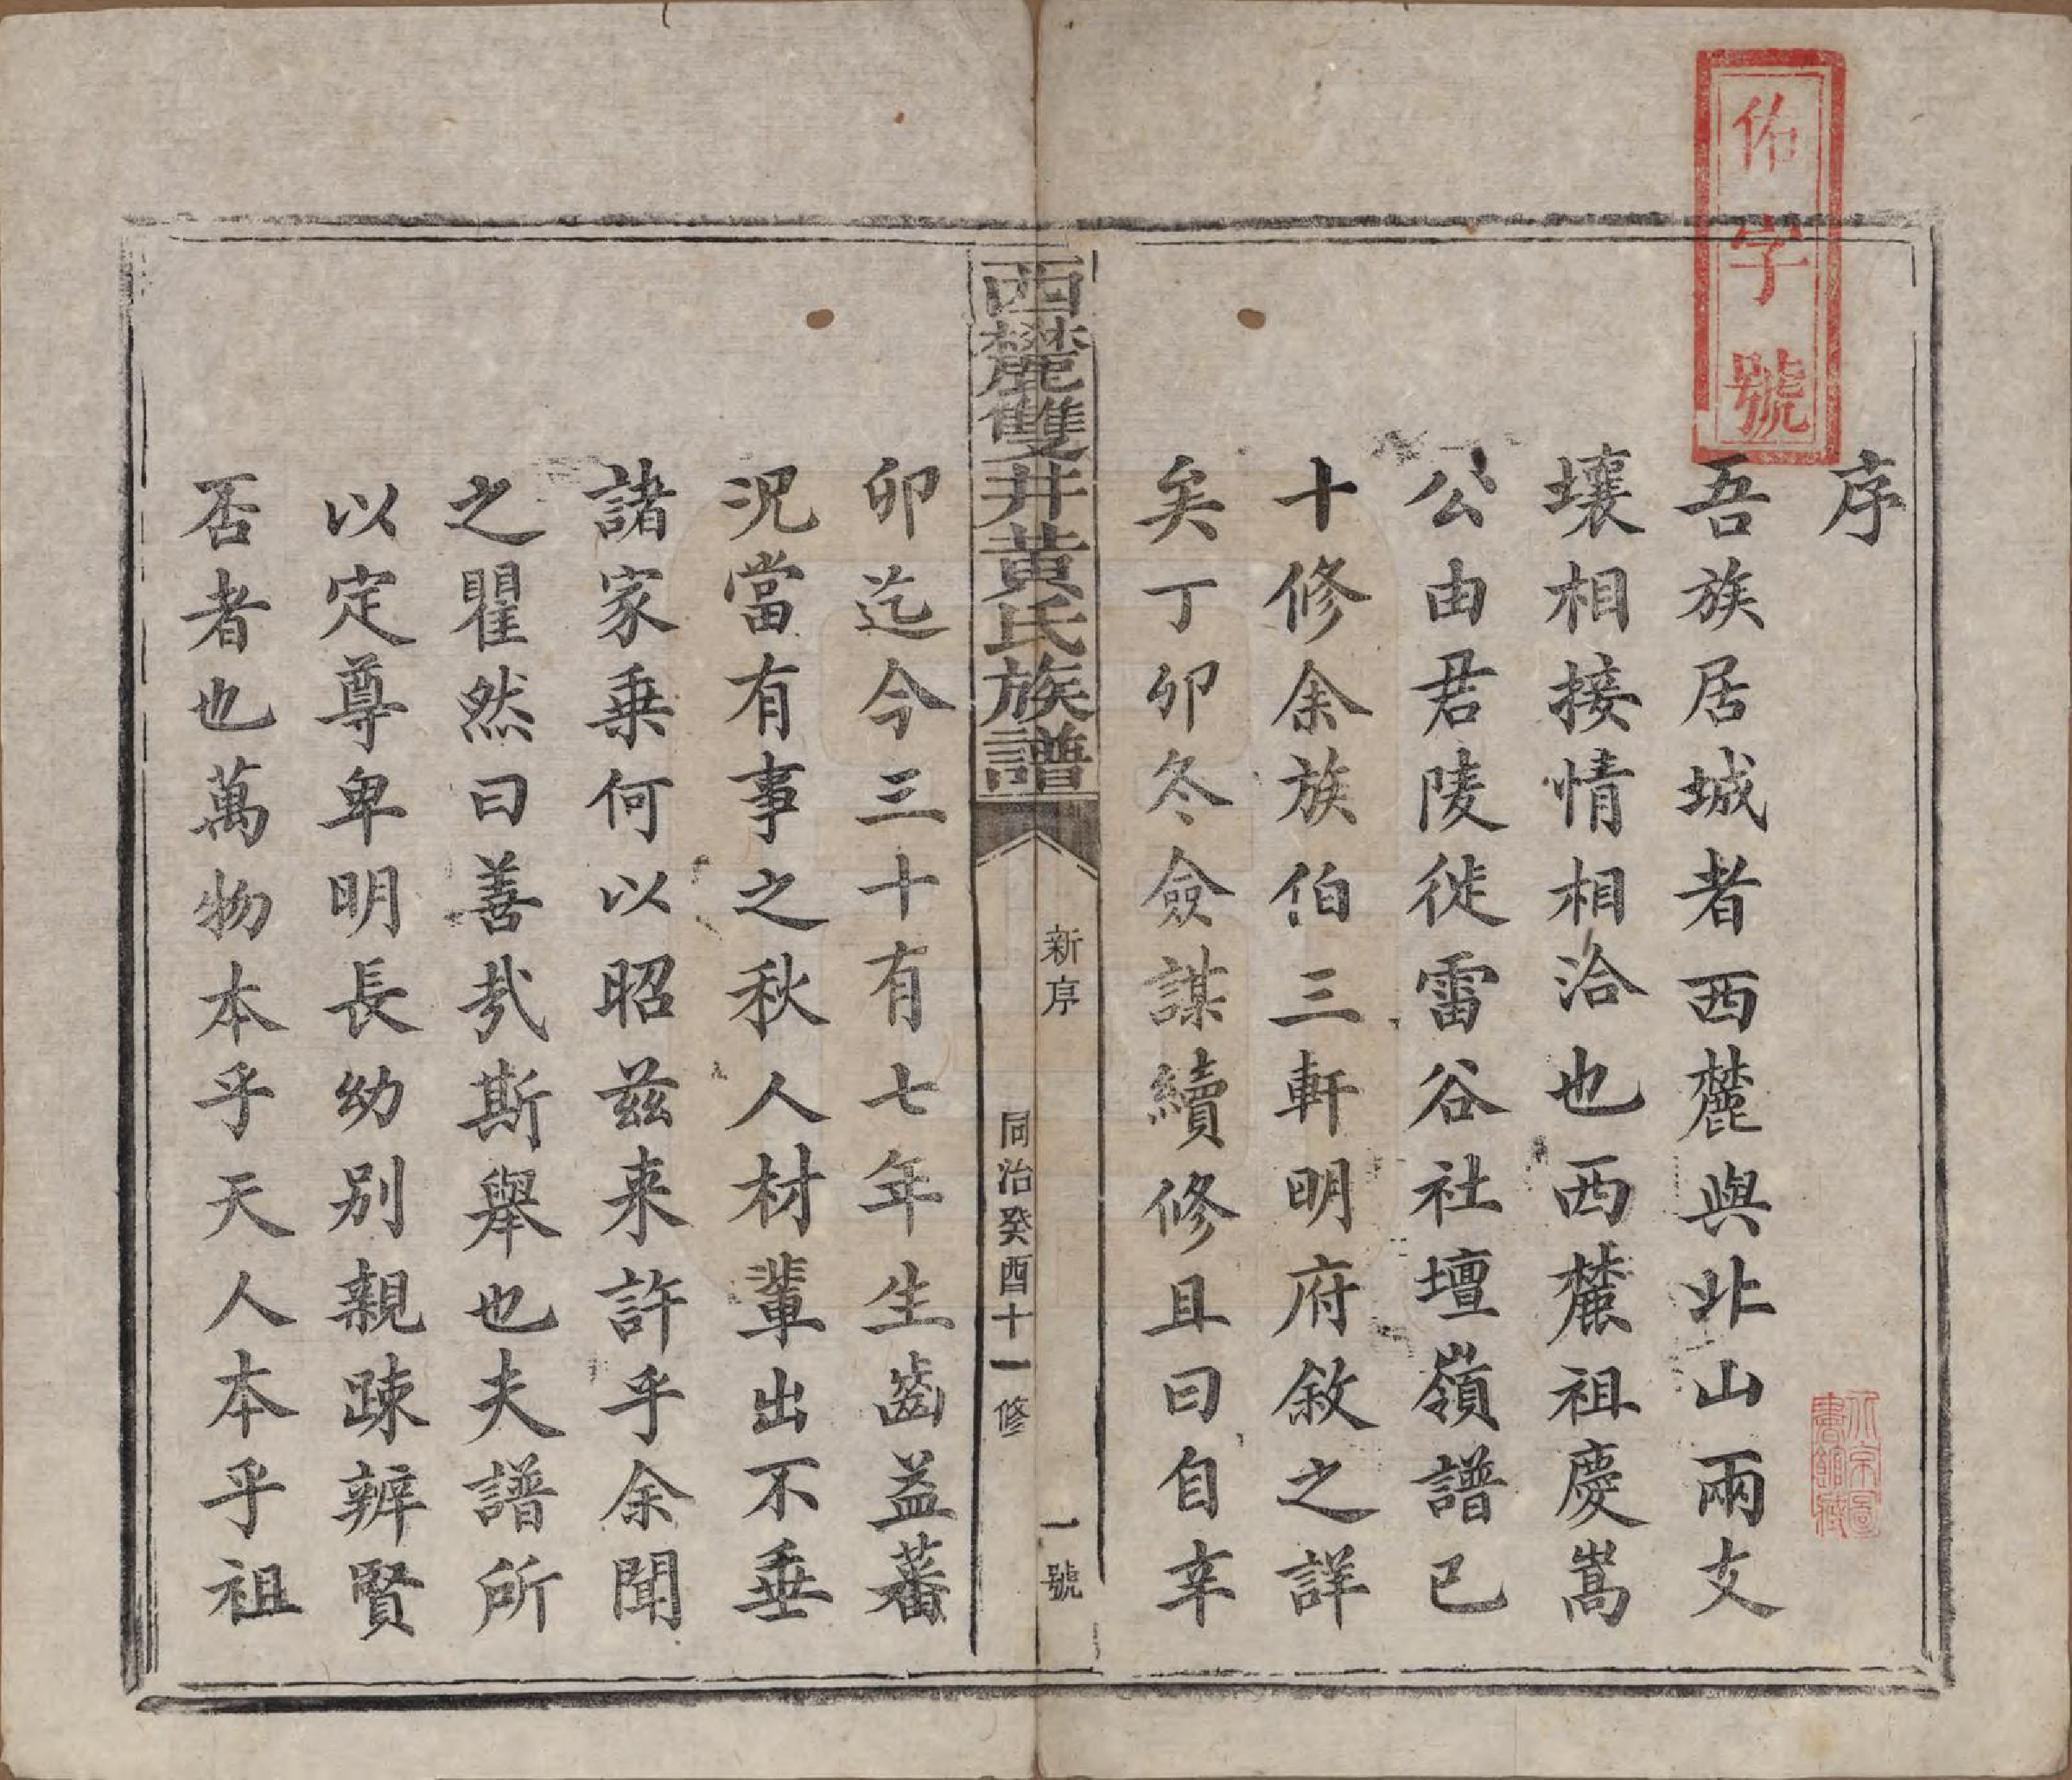 佑字號
序
吾族居城者西麓與北山兩支
壤相接情相洽也西麓祖慶嵩
公由君陵徙雷谷社壇嶺譜已
十修余族伯三軒明府敘之詳
矣丁卯冬僉謀續修且曰自辛
西麓雙井黃氏族譜
新序
一號
同治癸酉十一修
卯迄今三十有七年生齒益蕃
況當有事之秋人材輩出不垂
諸家乗何以昭兹来許乎余聞
之瞿然曰善哉斯舉也夫譜所
以定尊卑明長幼別親疎辨賢
否者也萬物本乎天人本乎祖